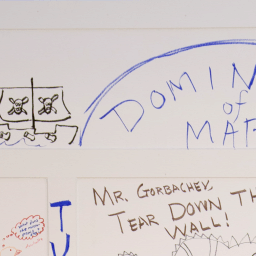 DOMIN
of
MAR
MR. GORBACHEV,
TEAR DOWN TH
WALL!